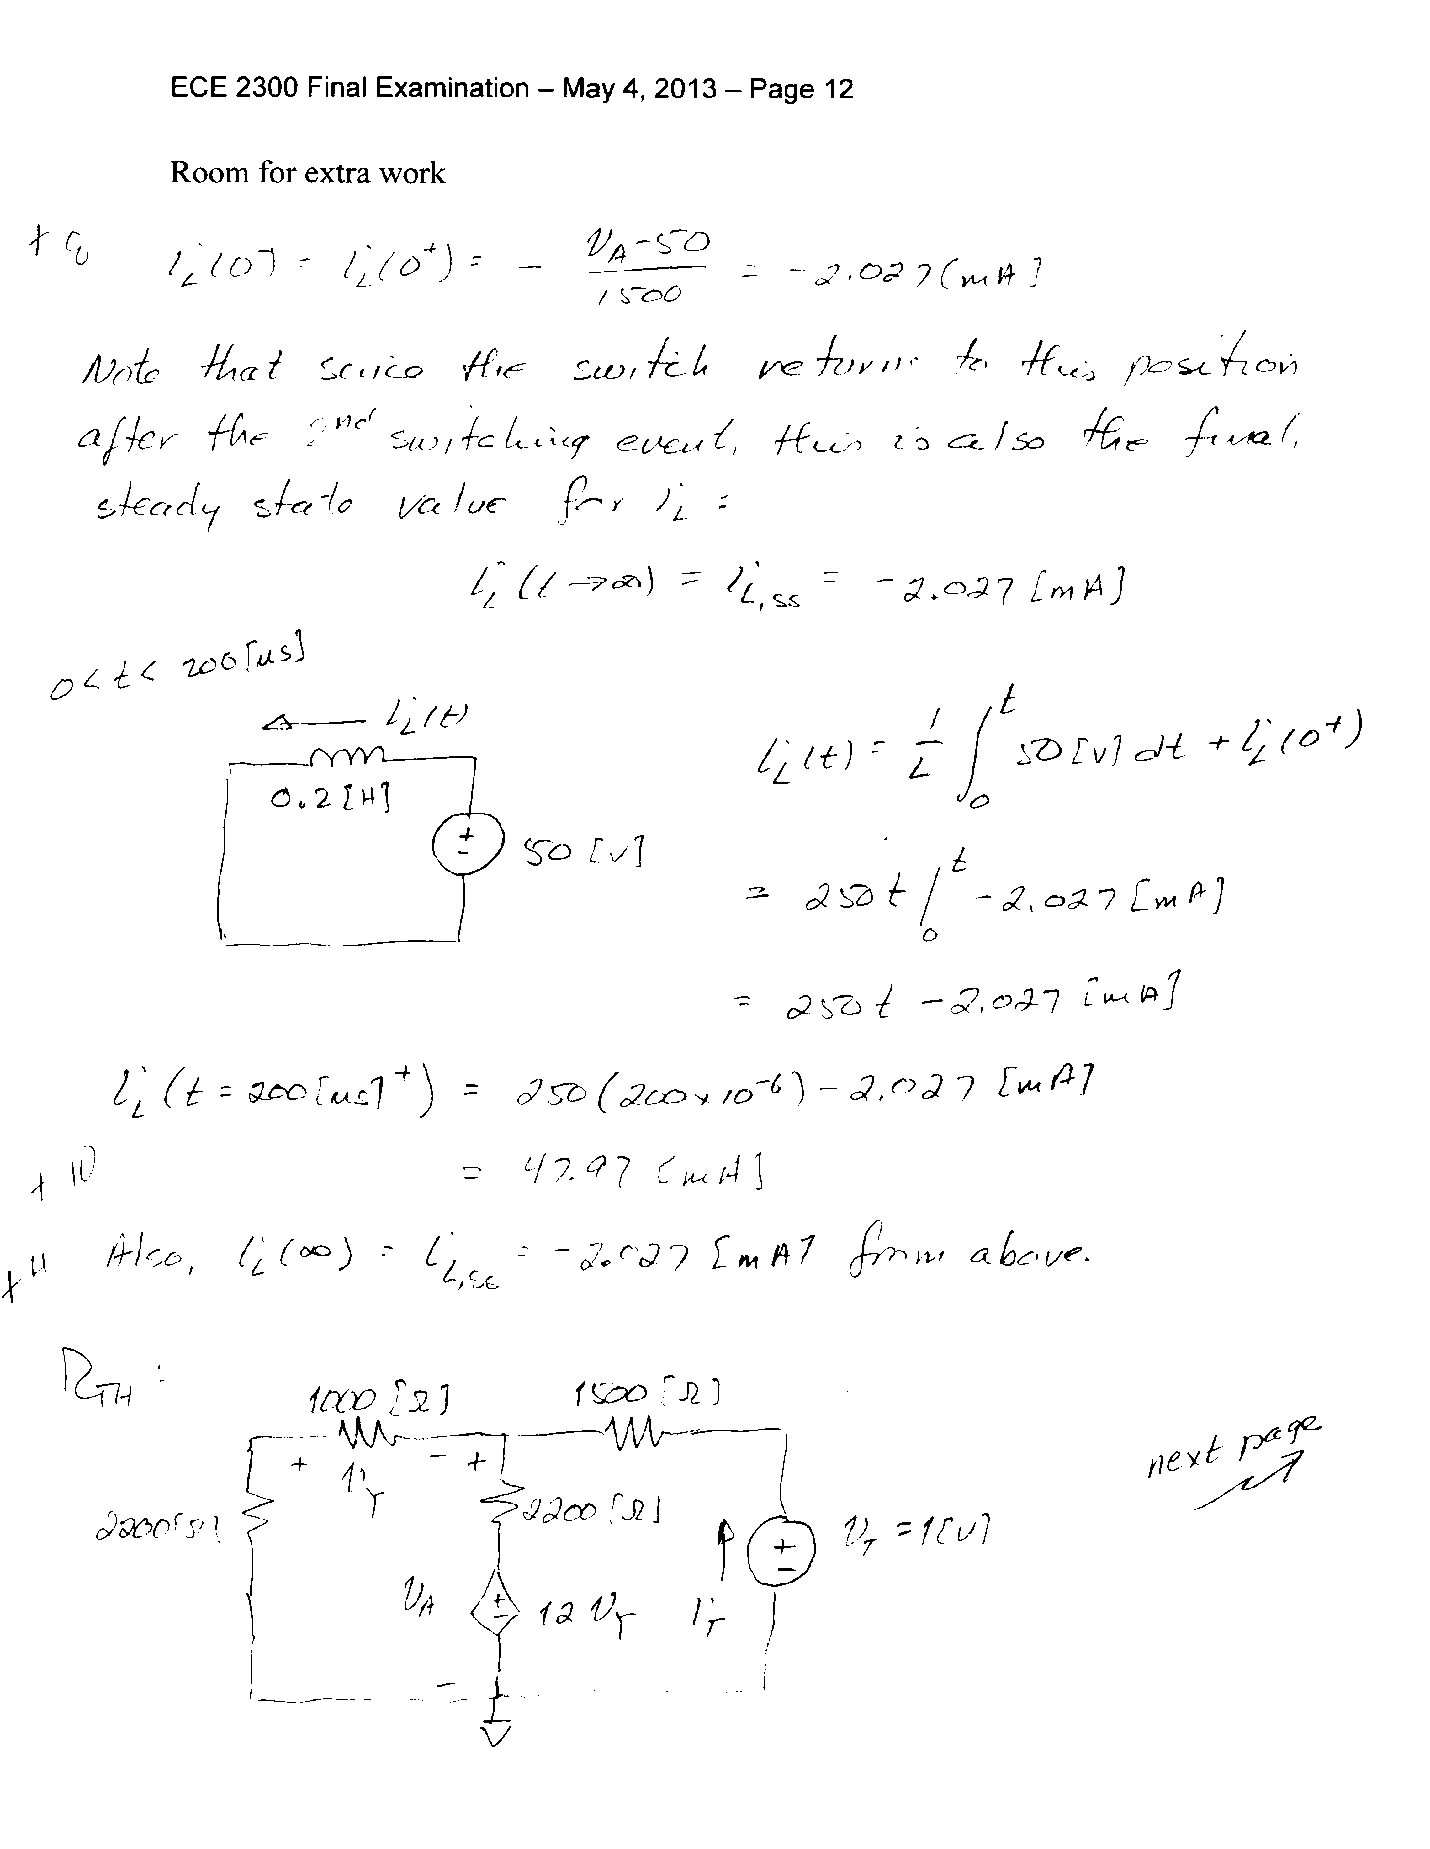 ECE 2300 Final Examination – May 4, 2013 – Page 12
Room for extra work
+8 i_L(0⁻) = i_L(0⁺) = - (v_A - 50)/1500 = -2.027 [mA]
Note that since the switch returns to this position
after the 2nd switching event, this is also the final,
steady state value for i_L :
i_L(t→∞) = i_L,ss = -2.027 [mA]
0 < t < 200 [μs]
i_L(t)
0.2 [H]
+
-
50 [V]
i_L(t) = 1/L ∫₀ᵗ 50 [V] dt + i_L(0⁺)
= 250t |₀ᵗ - 2.027 [mA]
= 250t - 2.027 [mA]
i_L(t = 200[μs]⁺) = 250(200×10⁻⁶) - 2.027 [mA]
+10 = 47.97 [mA]
+4 Also, i_L(∞) = i_L,ss = -2.027 [mA] from above.
R_TH :
1000 [Ω] 1500 [Ω]
+ v_Y - +
2200 [Ω] 2200 [Ω]
v_A + - 12 v_Y i_T + - v_T = 1 [V]
-
next page